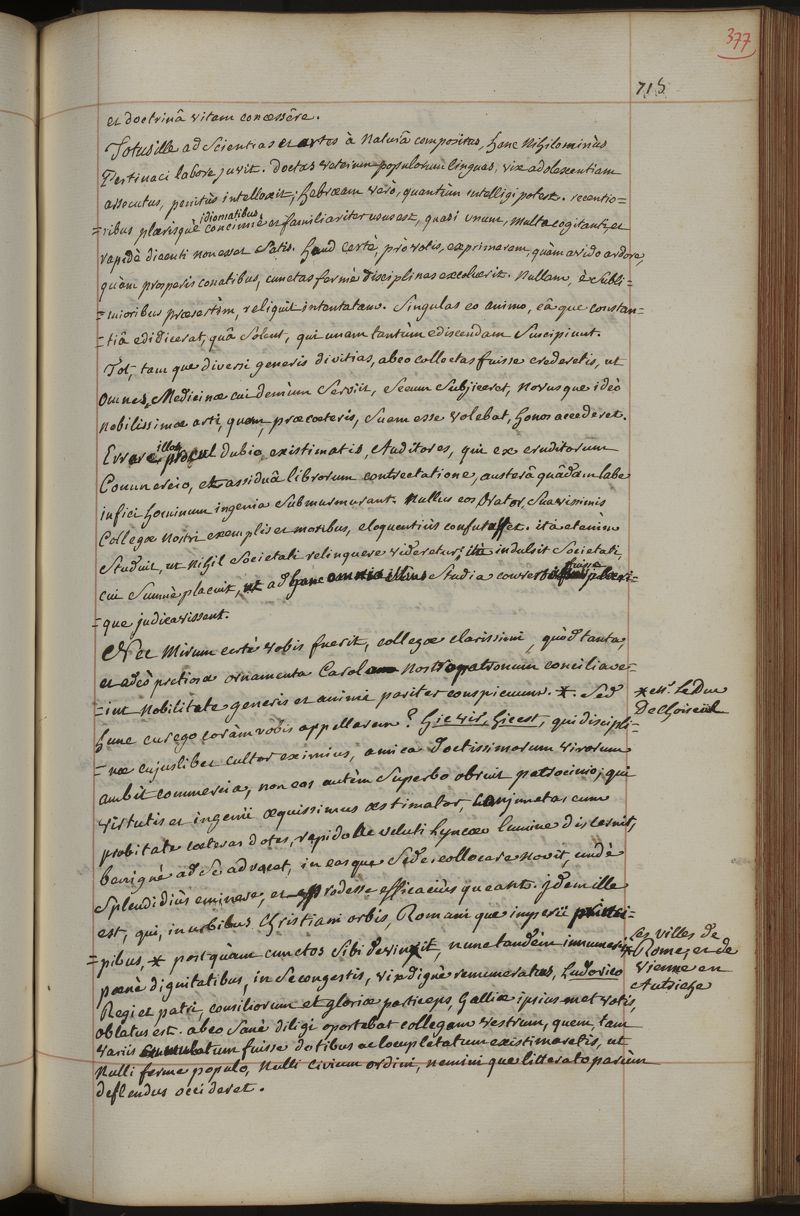 377
715
et doctrinâ vitam concessêre.
Totus ille ad Scientias et artes à Naturâ compositus, hanc Nihilominùs
Pertinaci labore juvit. Doctas veterum populorum linguas, vix adolescentiam
assecutus, penitùs intellexit; hebræam verò, quantùm intelligi potest. recentio=
idiomatibus
=ribus plærisque concinnè et familiariter usus est, quasi unum, multa cogitanti, et
rapidè dicenti non esset Satis. haud certè, prò votis, exprimerem, quàm avido ardore,
quàm prosperis conatibus, cunctas fermè disciplinas excoluerit. Nullam, è Subli=
=mioribus præsertìm, reliquit intentatam. Singulas eo animo, eâ que constan=
=tiâ edidicerat, quâ Solent, qui unam tantùm ediscendam Suscipiunt.
Tot, tam que diversi generis divitias, ab eo collectas fuisse crederetis, ut
Omnes, Medicinæ cui demùm Serviit, Secum Subjiceret, Novus que ideò
Nobilissimæ arti, quam, præ cæteris, Suam esse volebat, honos accederet.
illos
Errare procul dubio, existimatis, Auditores, qui ex eruditorum
Commercio, et assiduâ librorum contrectatione, austerâ quâdam labe
infici hominum ingenia Submurmurant. Nullus eos Orator, Suavissimis
Collegæ Nostri exemplis et moribus, eloquentiùs confutasset. ità etenim
Studuit, ut Nihil Societati relinquere videretur; ità indulsit Societati,
fuisse
cui Summè placuit, ut ad hanc omnia illius Studia conversa plæri=
=que judicavissent.
Nec Mirum certè vobis fuerit, collegæ clarissimi, quòd tanta,
et adeò pretiosa ornamenta Carolum Nostro patronum conciliave=
=rint Nobilitate generis et animi pariter conspicuum. * Sed
* Mr. Le Duc
De Choiseul
hunc cur ego coràm vobis appellarem? Hic vir, hic est, qui discipli=
=næ cujuslibet cultor eximius, amica Doctissimorum virorum
ambit commercia, non eos autèm Superbo obruit patrocinio; qui
virtutis et ingenii æquissimus æstimator, Conjunctas cum
probitate cæteras dotes, rapido ac veluti lynceo lumine discernit,
benignè ad Se advocat, in eas que Sedes collocare novit, undè
Splendidiùs eminere, et prodesse efficaciùs queant. idem ille
est, qui, in urbibus Christiani orbis, Romani que imperii princi=
=pibus, * postquàm cunctos Sibi devinxit, nunc tandèm innumeris
* Les villes de
Rome, et de
Vienne en
Autriche
pænè dignitatibus, in Se congestis, vix dignè remuneratus, Ludovico
Regi et patri, consiliorum et gloriæ particeps, Galliæ ipsius met votis,
oblatus est. ab eo Sanè diligi oportebat collegam vestrum, quem, tam
variis cumulatum fuisse dotibus ac locupletatum existimaretis, ut
Nulli fermè populo, Nulli Civium ordini, nemini que litterato parùm
deflendus occideret.